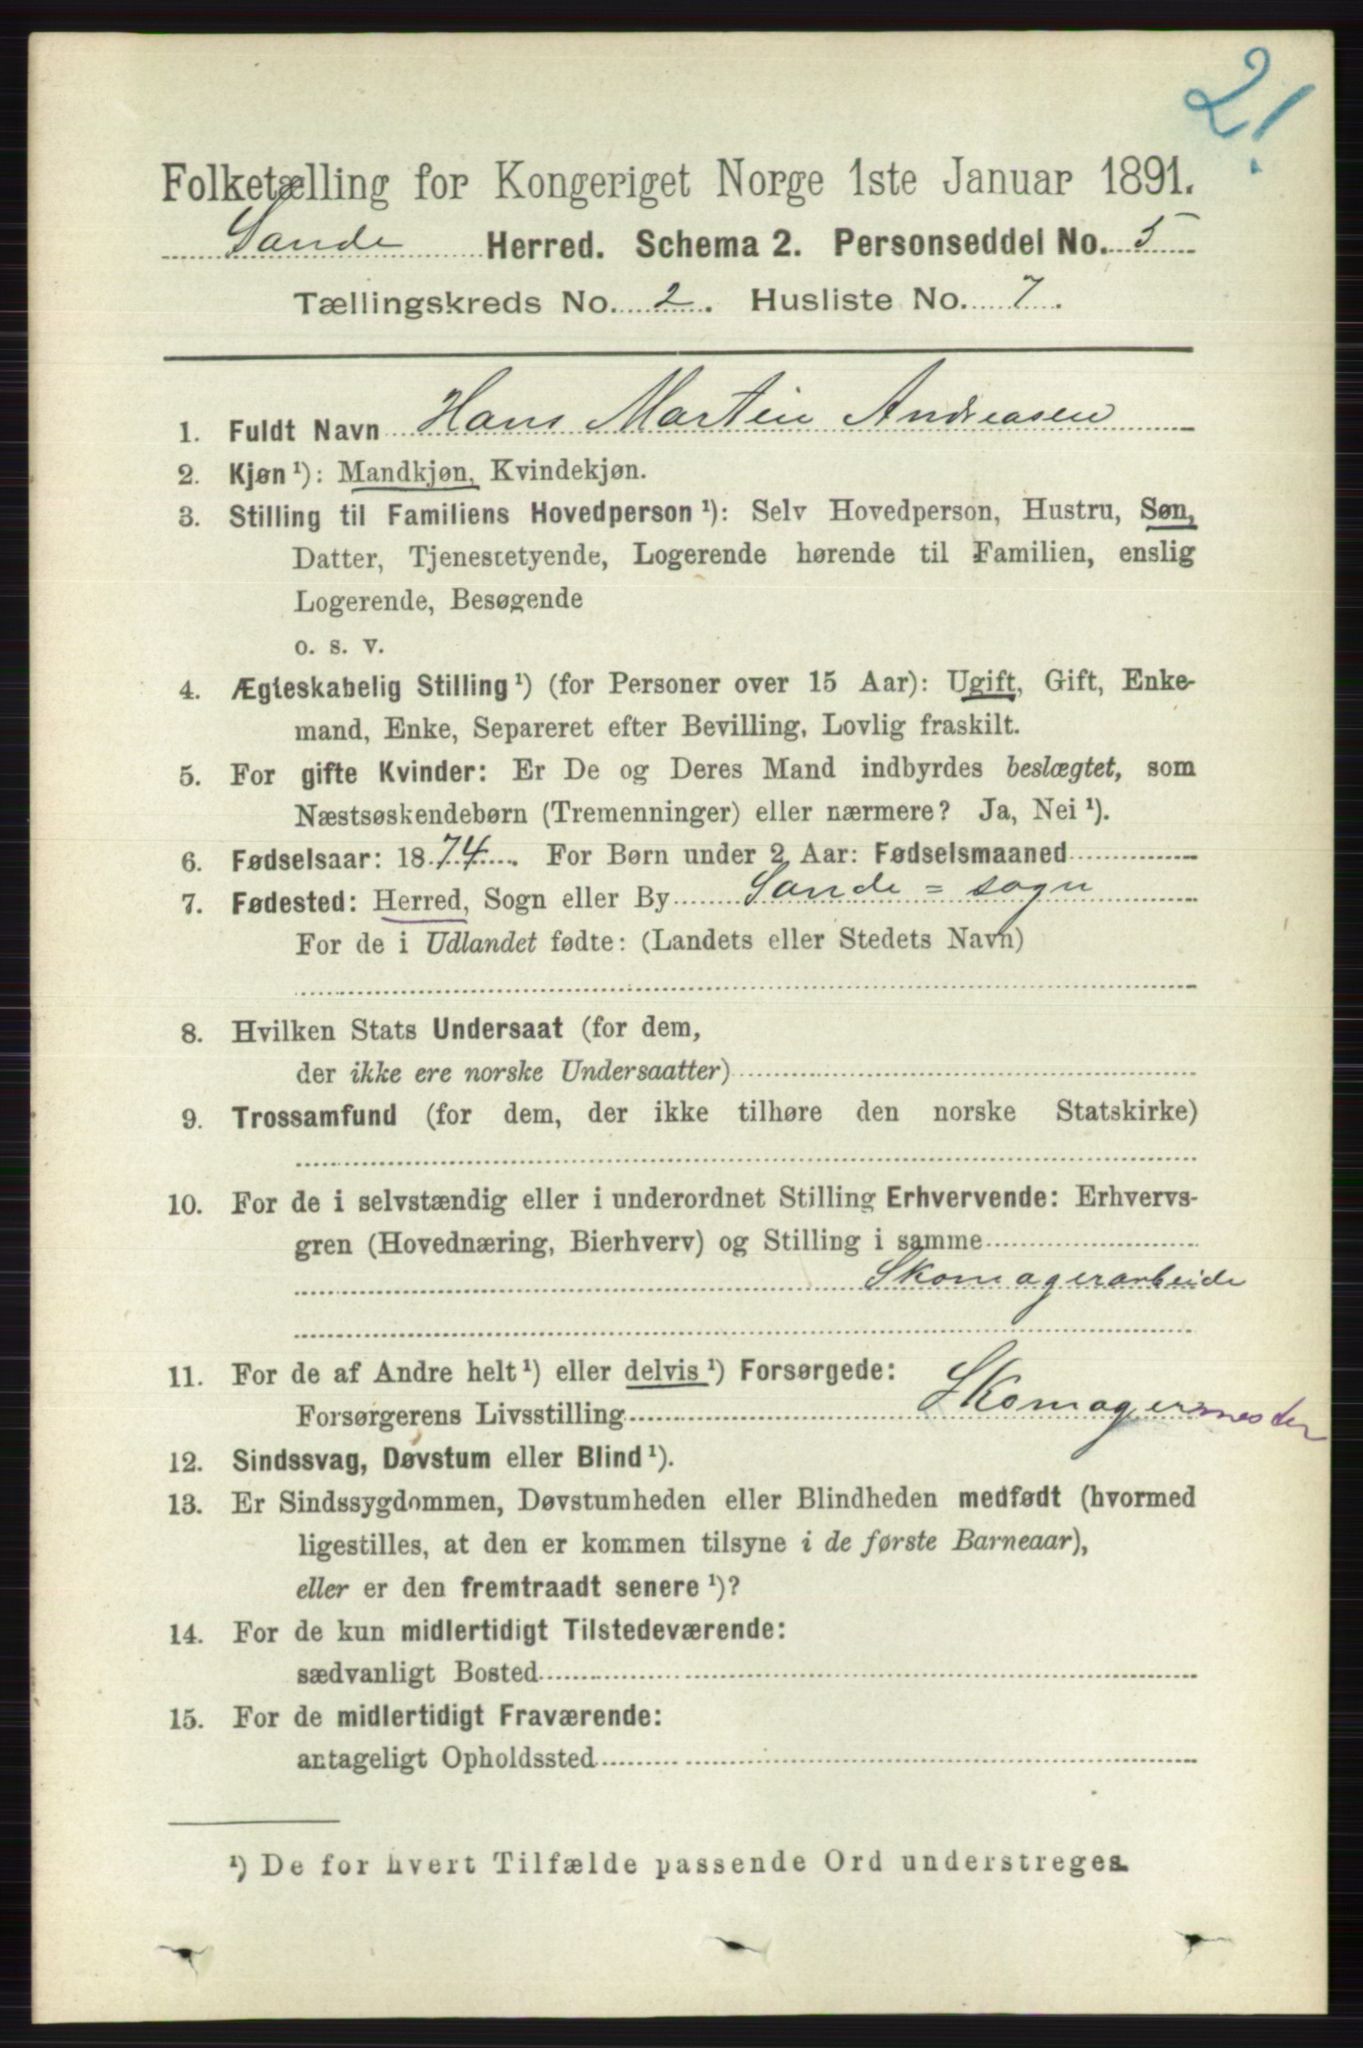 21
Folketælling for Kongeriget Norge 1ste Januar 1891.
Sande Herred. Schema 2. Personseddel No. 5
Tællingskreds No. 2. Husliste No. 7.
1. Fuldt Navn Hans Martin Andreasen
2. Kjøn ¹): Mandkjøn, Kvindekjøn.
3. Stilling til Familiens Hovedperson ¹): Selv Hovedperson, Hustru, Søn,
Datter, Tjenestetyende, Logerende hørende til Familien, enslig
Logerende, Besøgende
o. s. v.
4. Ægteskabelig Stilling ¹) (for Personer over 15 Aar): Ugift, Gift, Enke-
mand, Enke, Separeret efter Bevilling, Lovlig fraskilt.
5. For gifte Kvinder: Er De og Deres Mand indbyrdes beslægtet, som
Næstsøskendebørn (Tremenninger) eller nærmere? Ja, Nei ¹).
6. Fødselsaar: 1874. For Børn under 2 Aar: Fødselsmaaned
7. Fødested: Herred, Sogn eller By Sande = sogn
For de i Udlandet fødte: (Landets eller Stedets Navn)
8. Hvilken Stats Undersaat (for dem,
der ikke ere norske Undersaatter)
9. Trossamfund (for dem, der ikke tilhøre den norske Statskirke)
10. For de i selvstændig eller i underordnet Stilling Erhvervende: Erhvervs-
gren (Hovednæring, Bierhverv) og Stilling i samme
Skomagerarbeide
11. For de af Andre helt ¹) eller delvis ¹) Forsørgede:
Forsørgerens Livsstilling Skomagermester
12. Sindssvag, Døvstum eller Blind ¹).
13. Er Sindssygdommen, Døvstumheden eller Blindheden medfødt (hvormed
ligestilles, at den er kommen tilsyne i de første Barneaar),
eller er den fremtraadt senere ¹)?
14. For de kun midlertidigt Tilstedeværende:
sædvanligt Bosted
15. For de midlertidigt Fraværende:
antageligt Opholdssted
¹) De for hvert Tilfælde passende Ord understreges.